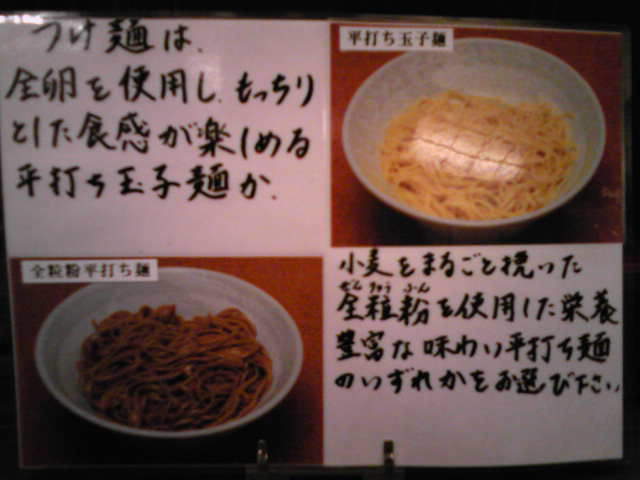 つけ麺は、
全卵を使用し、もっちり
とした食感が楽しめる
平打ち玉子麺か、
平打ち玉子麺
全粒粉平打ち麺
小麦をまるごと挽った
ぜんりゅうふん
全粒粉を使用した栄養
豊富な味わい平打ち麺
のいずれかをお選び下さい。